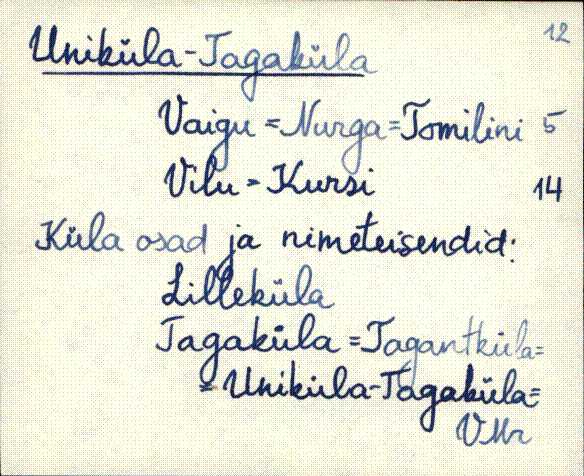 12
Uniküla-Tagaküla
Vaigu = Nurga = Tomilini 5
Vilu = Kursi 14
Küla osad ja nimeteisendid:
Lilleküla
Tagaküla = Tagantküla =
= Uniküla-Tagaküla =
VMr